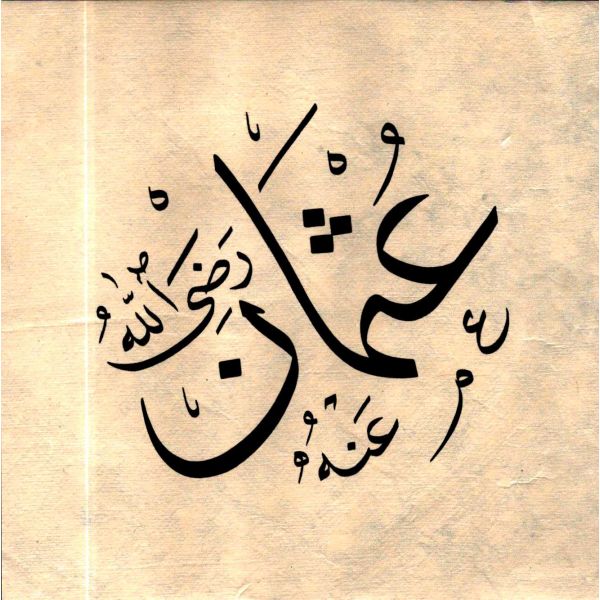 عُثْمَان
رَضِيَ اللّٰهُ
عَنْهُ